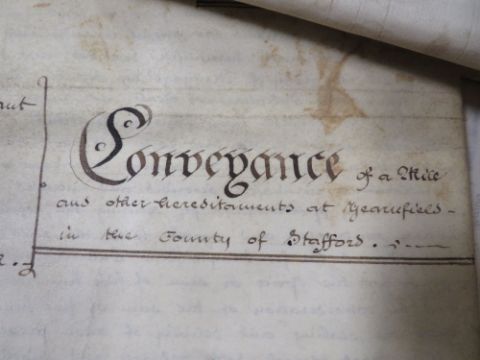 Conveyance of a Mill
and other hereditaments at Yearnfield -
in the County of Stafford.